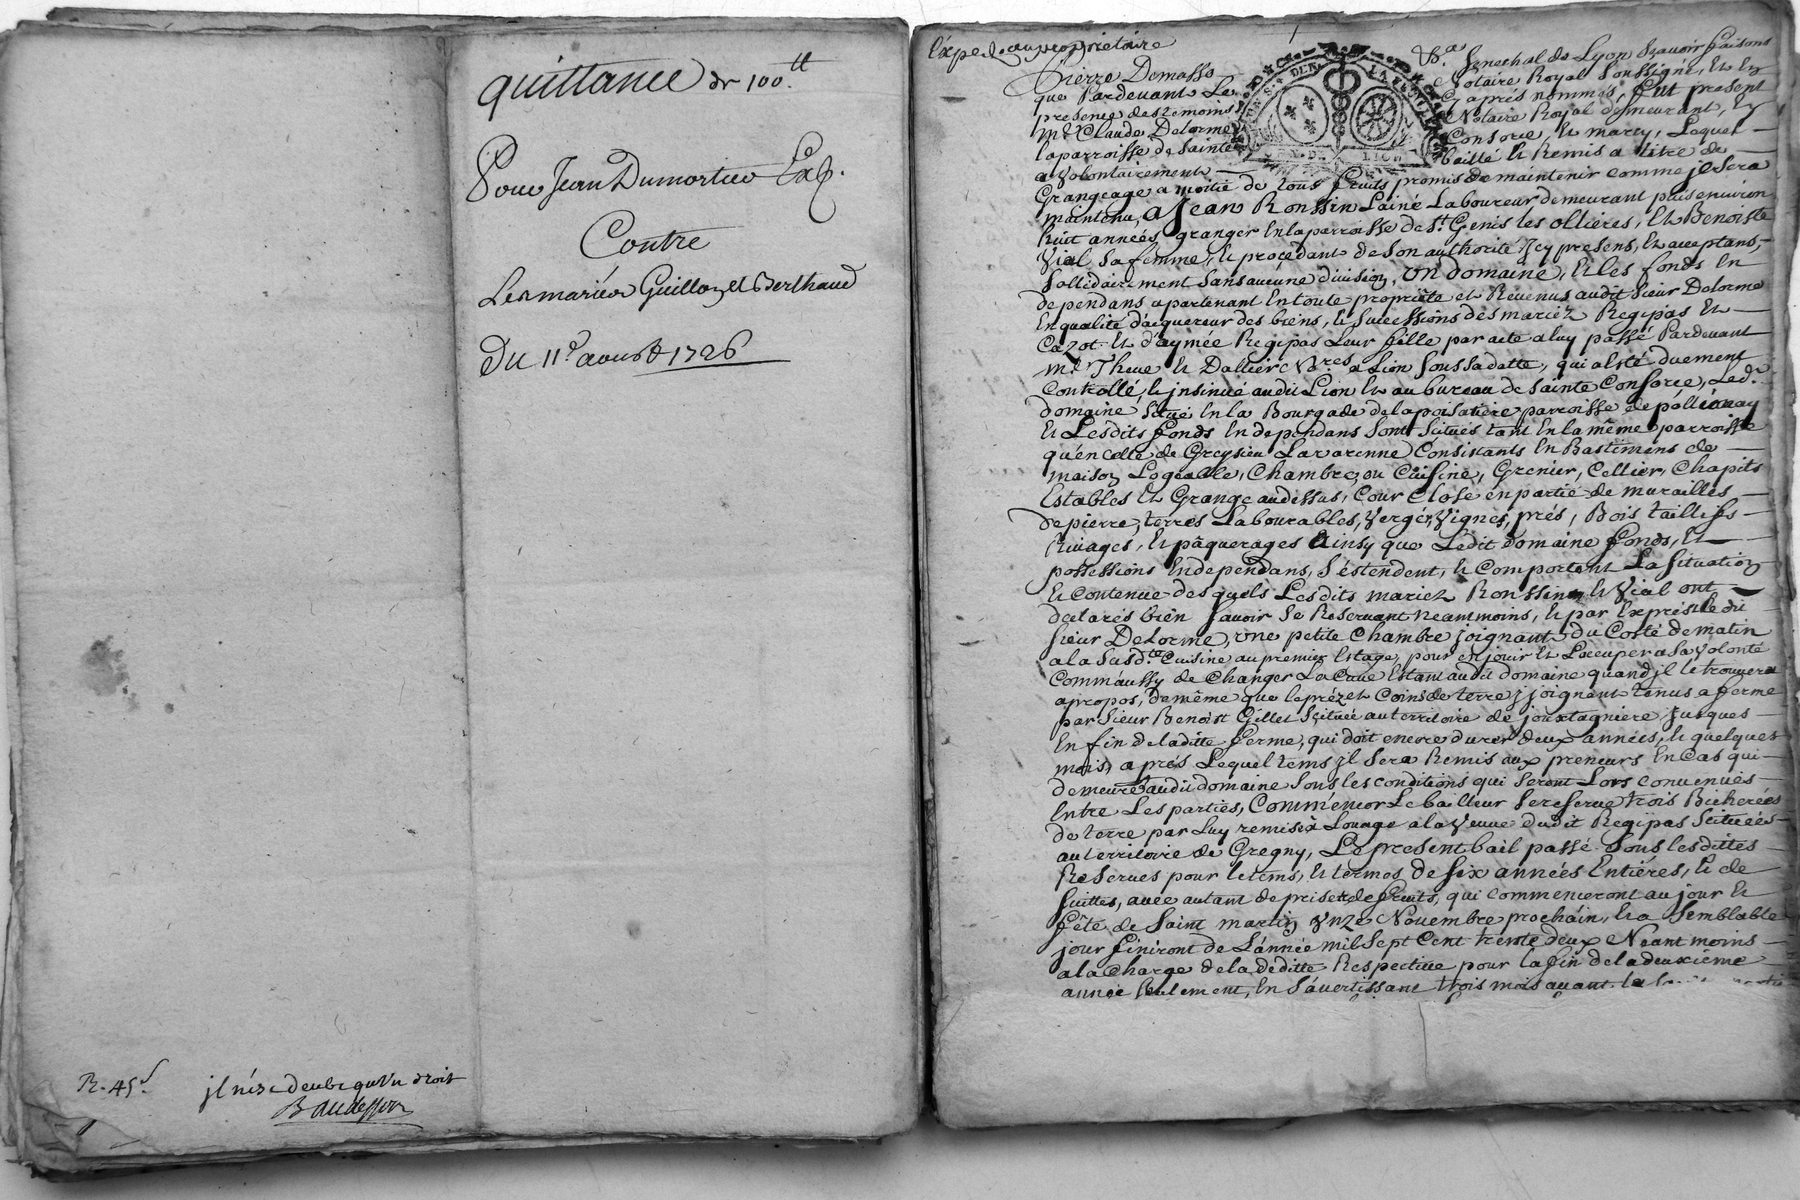 quittance de 100tt
Pour Jean Dumortier Exp.
Contre
Les mariés Guillon et Berthaud
Du 11e aoust 1726
R. 45s.
jl n'est deub qu'un droit
Baudesson
Exped. au propriétaire
Pierre Demasso Sénéchal de Lyon Scavoir faisons
que Pardevant Le Notaire Royal Soussigné, Et En
presence des temoins Cy aprés nommés, fut present
Mre Claude Delorme Notaire Royal demeurant, En
la parroisse de Sainte Consorce, et marcy, Lequel
a volontairement baillé et Remis a titre de
Grangeage a moitié de tous fruits promis de maintenir comme jl Sera
maintenu, a Jean Ronssin Lainé Laboureur demeurant puis environ
huit années granger En la parroisse de St. Genis les ollieres, Et Benoiste
Vial Sa femme, et procedant de Son authorité Jcy presens, Et acceptans,
Sollidairement Sans aucune division, un domaine, Et les fonds En
dependans apartenant En toute proprieté et Revenus audit Sieur Delorme
En qualité d'acquereur des biens, et Successions des mariéz Regipas Et
Cazot Et d'aymée Regipas Leur fille par acte a luy passé Pardevant
me Theve et Dallier Nres a Lion Sous Sa datte, qui a Esté duement
Controllé, et jnsinué audit Lion Et au bureau de Sainte Consorce, Led.
domaine Situé En la Bourgade de la poisatiere parroisse de pollionay
Et Lesdits fonds En dependans Sont Scitués tant En la même parroisse
qu'en celle de Greysieu Lavarenne Consistants En Bastimens de
maison Logeable, Chambre, ou Cuisine, Grenier, Cellier, Chapits
Estables Et Grange au dessus, Cour Close en partie de murailles
de pierre, terres Labourables, Verger, Vignes, prés, Bois taillifs
Rivages, et pâquerages Ainsy que Ledit domaine fonds, Et
possessions En dependans, S'éstendent, et Comportent La Situation
Et Contenue desquels Lesdits mariez Ronssin et Vial ont
declarés bien Savoir Se Reservant neantmoins, et par Exprés Le dit
Sieur Delorme, une petite Chambre joignant du Costé de matin
a la Susdte. Cuisine au premier Estage, pour en jouir Et L'occuper a Sa volonté
Comm'aussy de Changer La Cave Estant audit domaine quand jl le trouvera
apropos, De même que le préz et Coins de terre y joignant tenus a ferme
par Sieur Benoist Gillet Scituée au territoire de jouxtagniere jusques
En fin de la ditte ferme, qui doit encore durer deux années, et quelques
mois, aprés Lequel tems jl Sera Remis aux preneurs En Cas qui
demeure audit domaine Sous les conditions qui Seront Lors convenues
Entre Les parties, Comm'encor Le bailleur Se reserve trois Bicherées
de terre par Luy remise a Louage a la Veuve dudit Regipas Scituées
au territoire de Gregny, Le present bail passé Sous lesdittes
Reserves pour le tems, et termes de Six années Entiéres, et de
Suittes, avec autant de prises de fruits, qui commenceront au jour Et
fête de Saint martin onze Novembre prochain, Et a Semblable
jour finiront de L'année mil Sept Cent trente deux Néantmoins
a la Charge de la deditte Respective pour la fin de la deuxieme
année Seulement, En S'avertissant trois mois avant. la